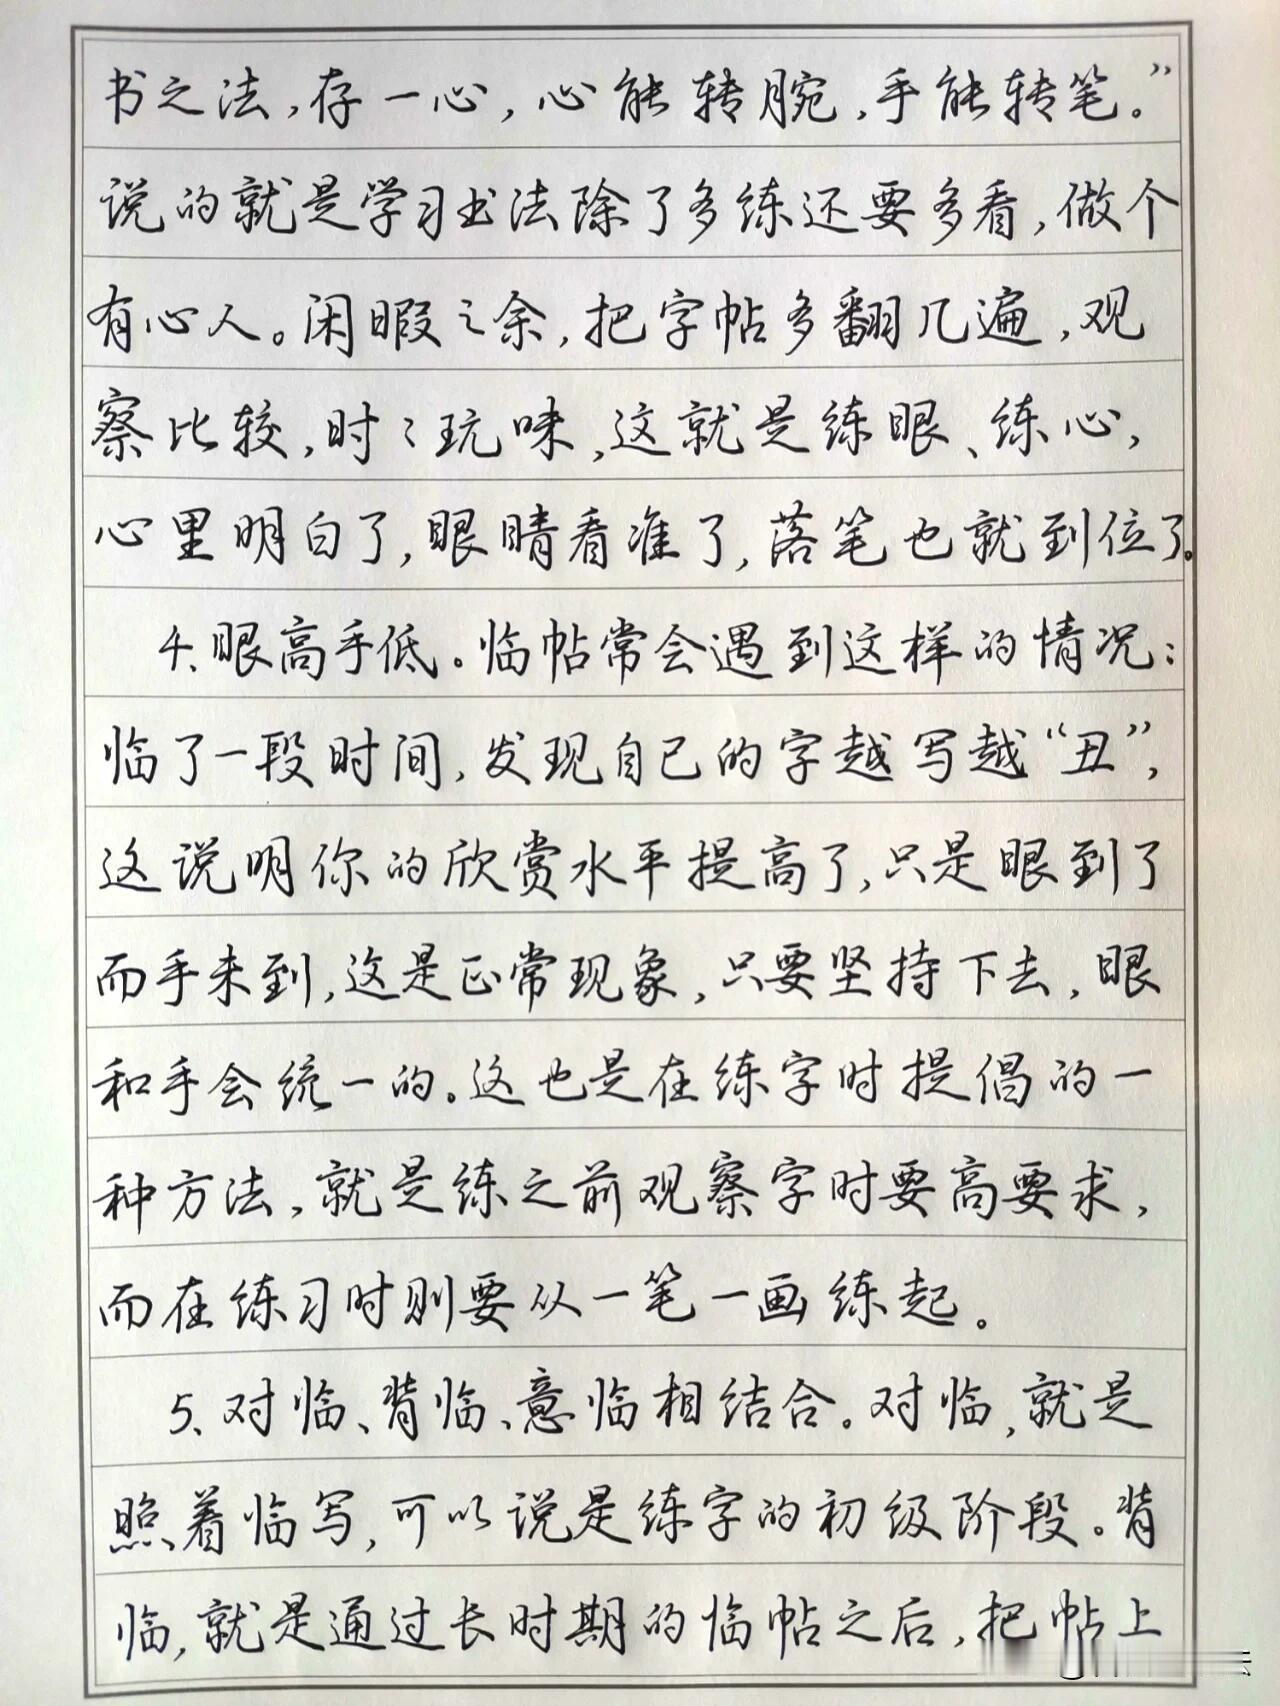 书之法，存一心，心能转腕，手能转笔。”
说的就是学习书法除了多练还要多看，做个
有心人。闲暇之余，把字帖多翻几遍，观
察比较，时々玩味，这就是练眼、练心，
心里明白了，眼睛看准了，落笔也就到位了。
4、眼高手低。临帖常会遇到这样的情况：
临了一段时间，发现自己的字越写越“丑”，
这说明你的欣赏水平提高了，只是眼到了
而手未到，这是正常现象，只要坚持下去，眼
和手会统一的。这也是在练字时提倡的一
种方法，就是练之前观察字时要高要求，
而在练习时则要从一笔一画练起。
5、对临、背临、意临相结合。对临，就是
照着临写，可以说是练字的初级阶段。背
临，就是通过长时期的临帖之后，把帖上